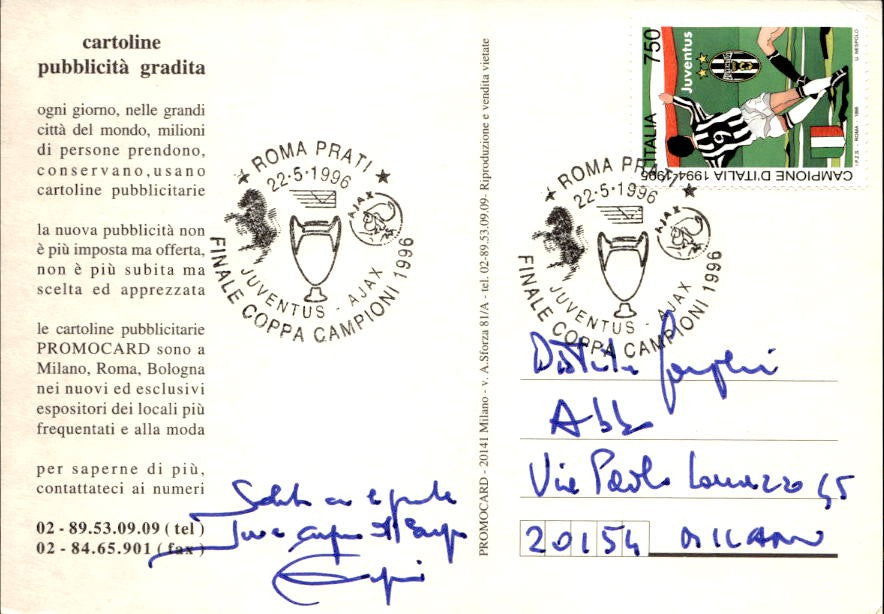 cartoline
pubblicità gradita
ogni giorno, nelle grandi
città del mondo, milioni
di persone prendono,
conservano, usano
cartoline pubblicitarie
la nuova pubblicità non
è più imposta ma offerta,
non è più subita ma
scelta ed apprezzata
le cartoline pubblicitarie
PROMOCARD sono a
Milano, Roma, Bologna
nei nuovi ed esclusivi
espositori dei locali più
frequentati e alla moda
per saperne di più,
contattateci ai numeri
02 - 89.53.09.09 ( tel )
02 - 84.65.901 ( fax )
ROMA PRATI
22·5·1996
AJAX
JUVENTUS - AJAX
FINALE COPPA CAMPIONI 1996
PROMOCARD - 20141 Milano - v. A.Sforza 81/A - tel. 02-89.53.09.09- Riproduzione e vendita vietate
ITALIA 750
Juventus
CAMPIONE D'ITALIA 1994-1995
U. NESPOLO
I.P.Z.S. - ROMA - 1995
ROMA PRATI
22·5·1996
AJAX
JUVENTUS - AJAX
FINALE COPPA CAMPIONI 1996
Via Paolo Lomazzo 45
20154 MILANO